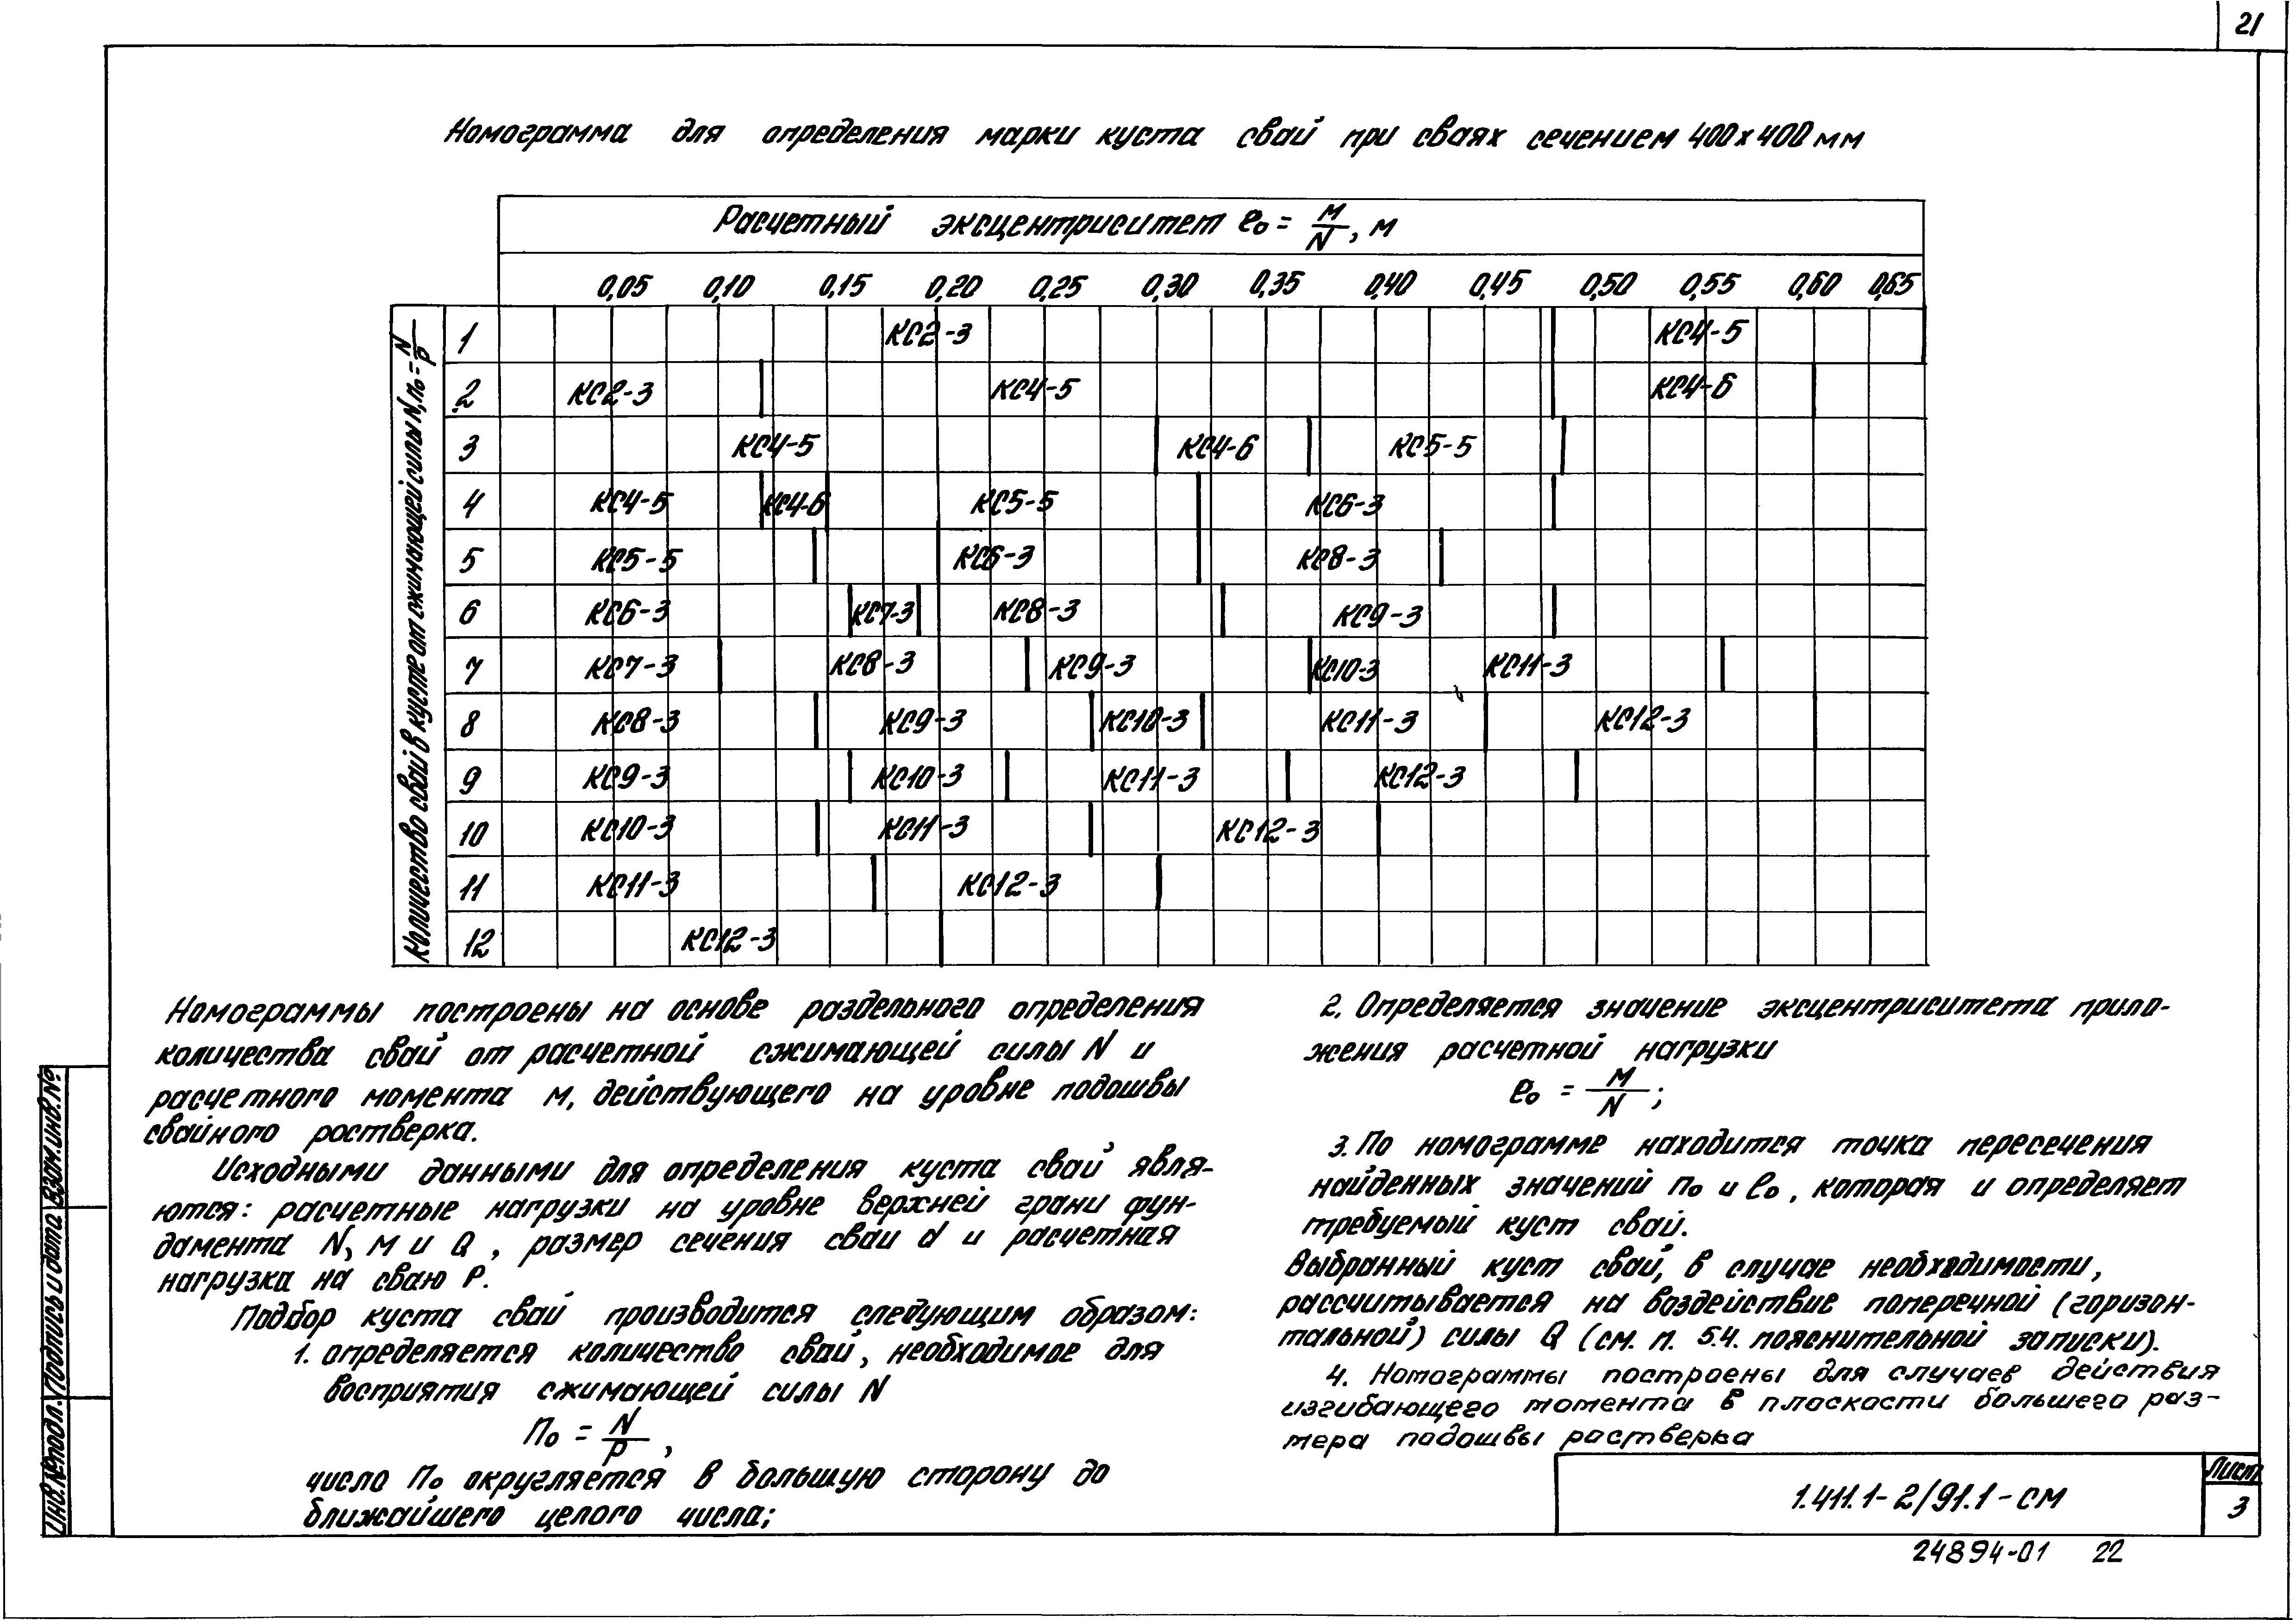 21
Номограмма для определения марки куста свай при сваях сечением 400х400 мм
Расчетный эксцентриситет e₀ = M/N, м
0,05 0,10 0,15 0,20 0,25 0,30 0,35 0,40 0,45 0,50 0,55 0,60 0,65
Количество свай в кусте от сжимающей силы N, n₀ = N/P
1 КС2-3 КС4-5
2 КС2-3 КС4-5 КС4-6
3 КС4-5 КС4-6 КС5-5
4 КС4-5 КС4-6 КС5-5 КС6-3
5 КС5-5 КС6-3 КС8-3
6 КС6-3 КС7-3 КС8-3 КС9-3
7 КС7-3 КС8-3 КС9-3 КС10-3 КС11-3
8 КС8-3 КС9-3 КС10-3 КС11-3 КС12-3
9 КС9-3 КС10-3 КС11-3 КС12-3
10 КС10-3 КС11-3 КС12-3
11 КС11-3 КС12-3
12 КС12-3
Номограммы построены на основе раздельного определения
количества свай от расчетной сжимающей силы N и
расчетного момента М, действующего на уровне подошвы
свайного ростверка.
Исходными данными для определения куста свай явля-
ются: расчетные нагрузки на уровне верхней грани фун-
дамента N, М и Q, размер сечения сваи d и расчетная
нагрузка на сваю Р.
Подбор куста свай производится следующим образом:
1. определяется количество свай, необходимое для
восприятия сжимающей силы N
n₀ = N/P,
число n₀ округляется в большую сторону до
ближайшего целого числа;
2. Определяется значение эксцентриситета прило-
жения расчетной нагрузки
e₀ = M/N;
3. По номограмме находится точка пересечения
найденных значений n₀ и e₀, которая и определяет
требуемый куст свай.
Выбранный куст свай, в случае необходимости,
рассчитывается на воздействие поперечной (горизон-
тальной) силы Q (см. п. 5.4. пояснительной записки).
4. Номограммы построены для случаев действия
изгибающего момента в плоскости большего раз-
мера подошвы ростверка
1.411.1-2/91.1-СМ
Лист
3
24894-01 22
Инв.№подл. Подпись и дата Взам.инв.№